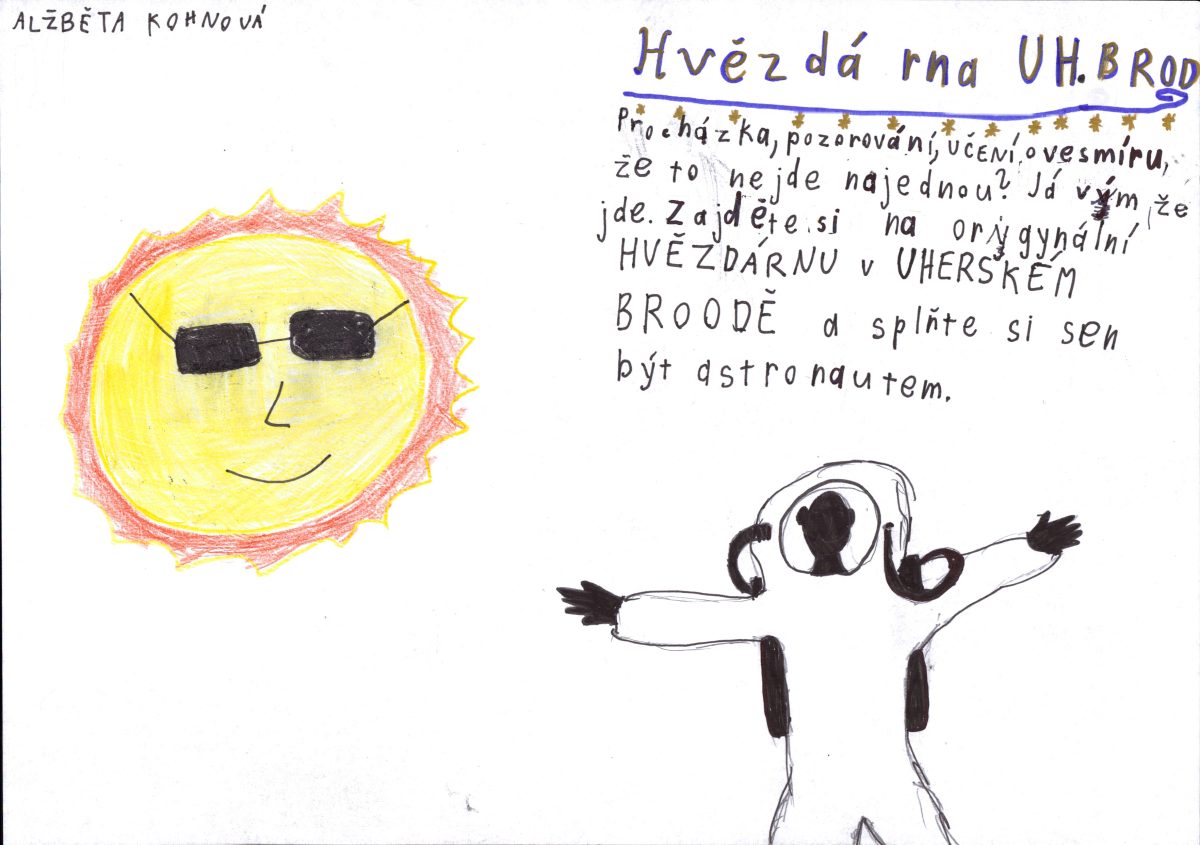 ALŽBĚTA KOHNOVÁ
Hvězdárna UH. BROD
Procházka, pozorování, UČENÍ o vesmíru,
že to nejde najednou? Já vým, že
jde. Zajděte si na orygynální
HVĚZDÁRNU v UHERSKÉM
BROODĚ a splňte si sen
být astronautem.